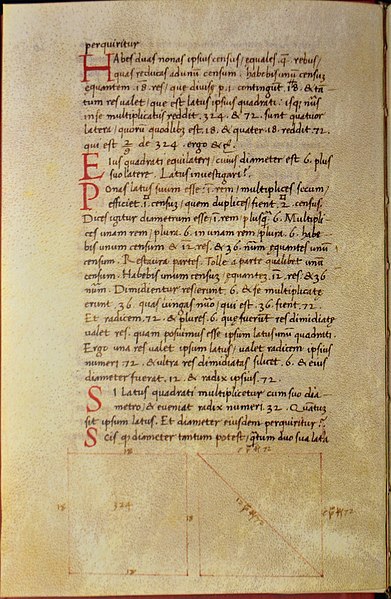 perquiritur
HAbes duas nonas ipsius census/ equales .q̃. rebus/
quas reducas adunũ censum. habebis unũ censuʒ
equantem .18. res/ que diuise p̃.1. contingũt .18. & tã
tum res ualet/ que est latus ipsius quadrati. isq; nũs
inse multiplicatus reddit .324. & 72. sunt quatuor
latera/ quorũ quodlibʒ est .18. & quater .18. reddit .72.
qui est 2/9 de 324. ergo &c̃.
EIus quadrati equilateri/ cuius diameter est 6. plus
suo latere. Latus inuestigari?
POnas latus suum esse .1. rem/ multiplices secum/
efficiet .1. censuʒ/ quem duplices/ fient .2. census.
Dices igitur diametrum esse .1. rem/ plusq̃ 6. Multipli
ces unam rem/ plura .6. in unam rem/ plura .6. habe
bis unum censum & 12. res/ & 36. nũm equantes unũ
censum. Restaura partes. Tolle a parte qualibet unũ
censum. Habebis unum censuʒ/ equanteʒ .12. res & 36
nũm. Dimidientur res/ erunt 6. & se multiplicate
erunt .36. quas iungas nũo/ qui est .36. fient .72.
Et radicem .72. & plures .6. que fuerũt res dimidiate
ualet res. quam posuimus esse ipsum latus unũ quadrati.
Ergo una res ualet ipsum latus/ ualet radicem ipsius
numeri .72. & ultra res dimidiatas silicet .6. & eius
diameter fuerat .12. & radix ipsius .72.
SI latus quadrati multiplicetur cum suo dia
metro/ & eueniat radix numeri .32. Quantuʒ
sit ipsum latus. Et diameter eiusdem perquiritur?
SCis q; diameter tantum potest/ q̃tum duo sua lata
18
18
324
18
18